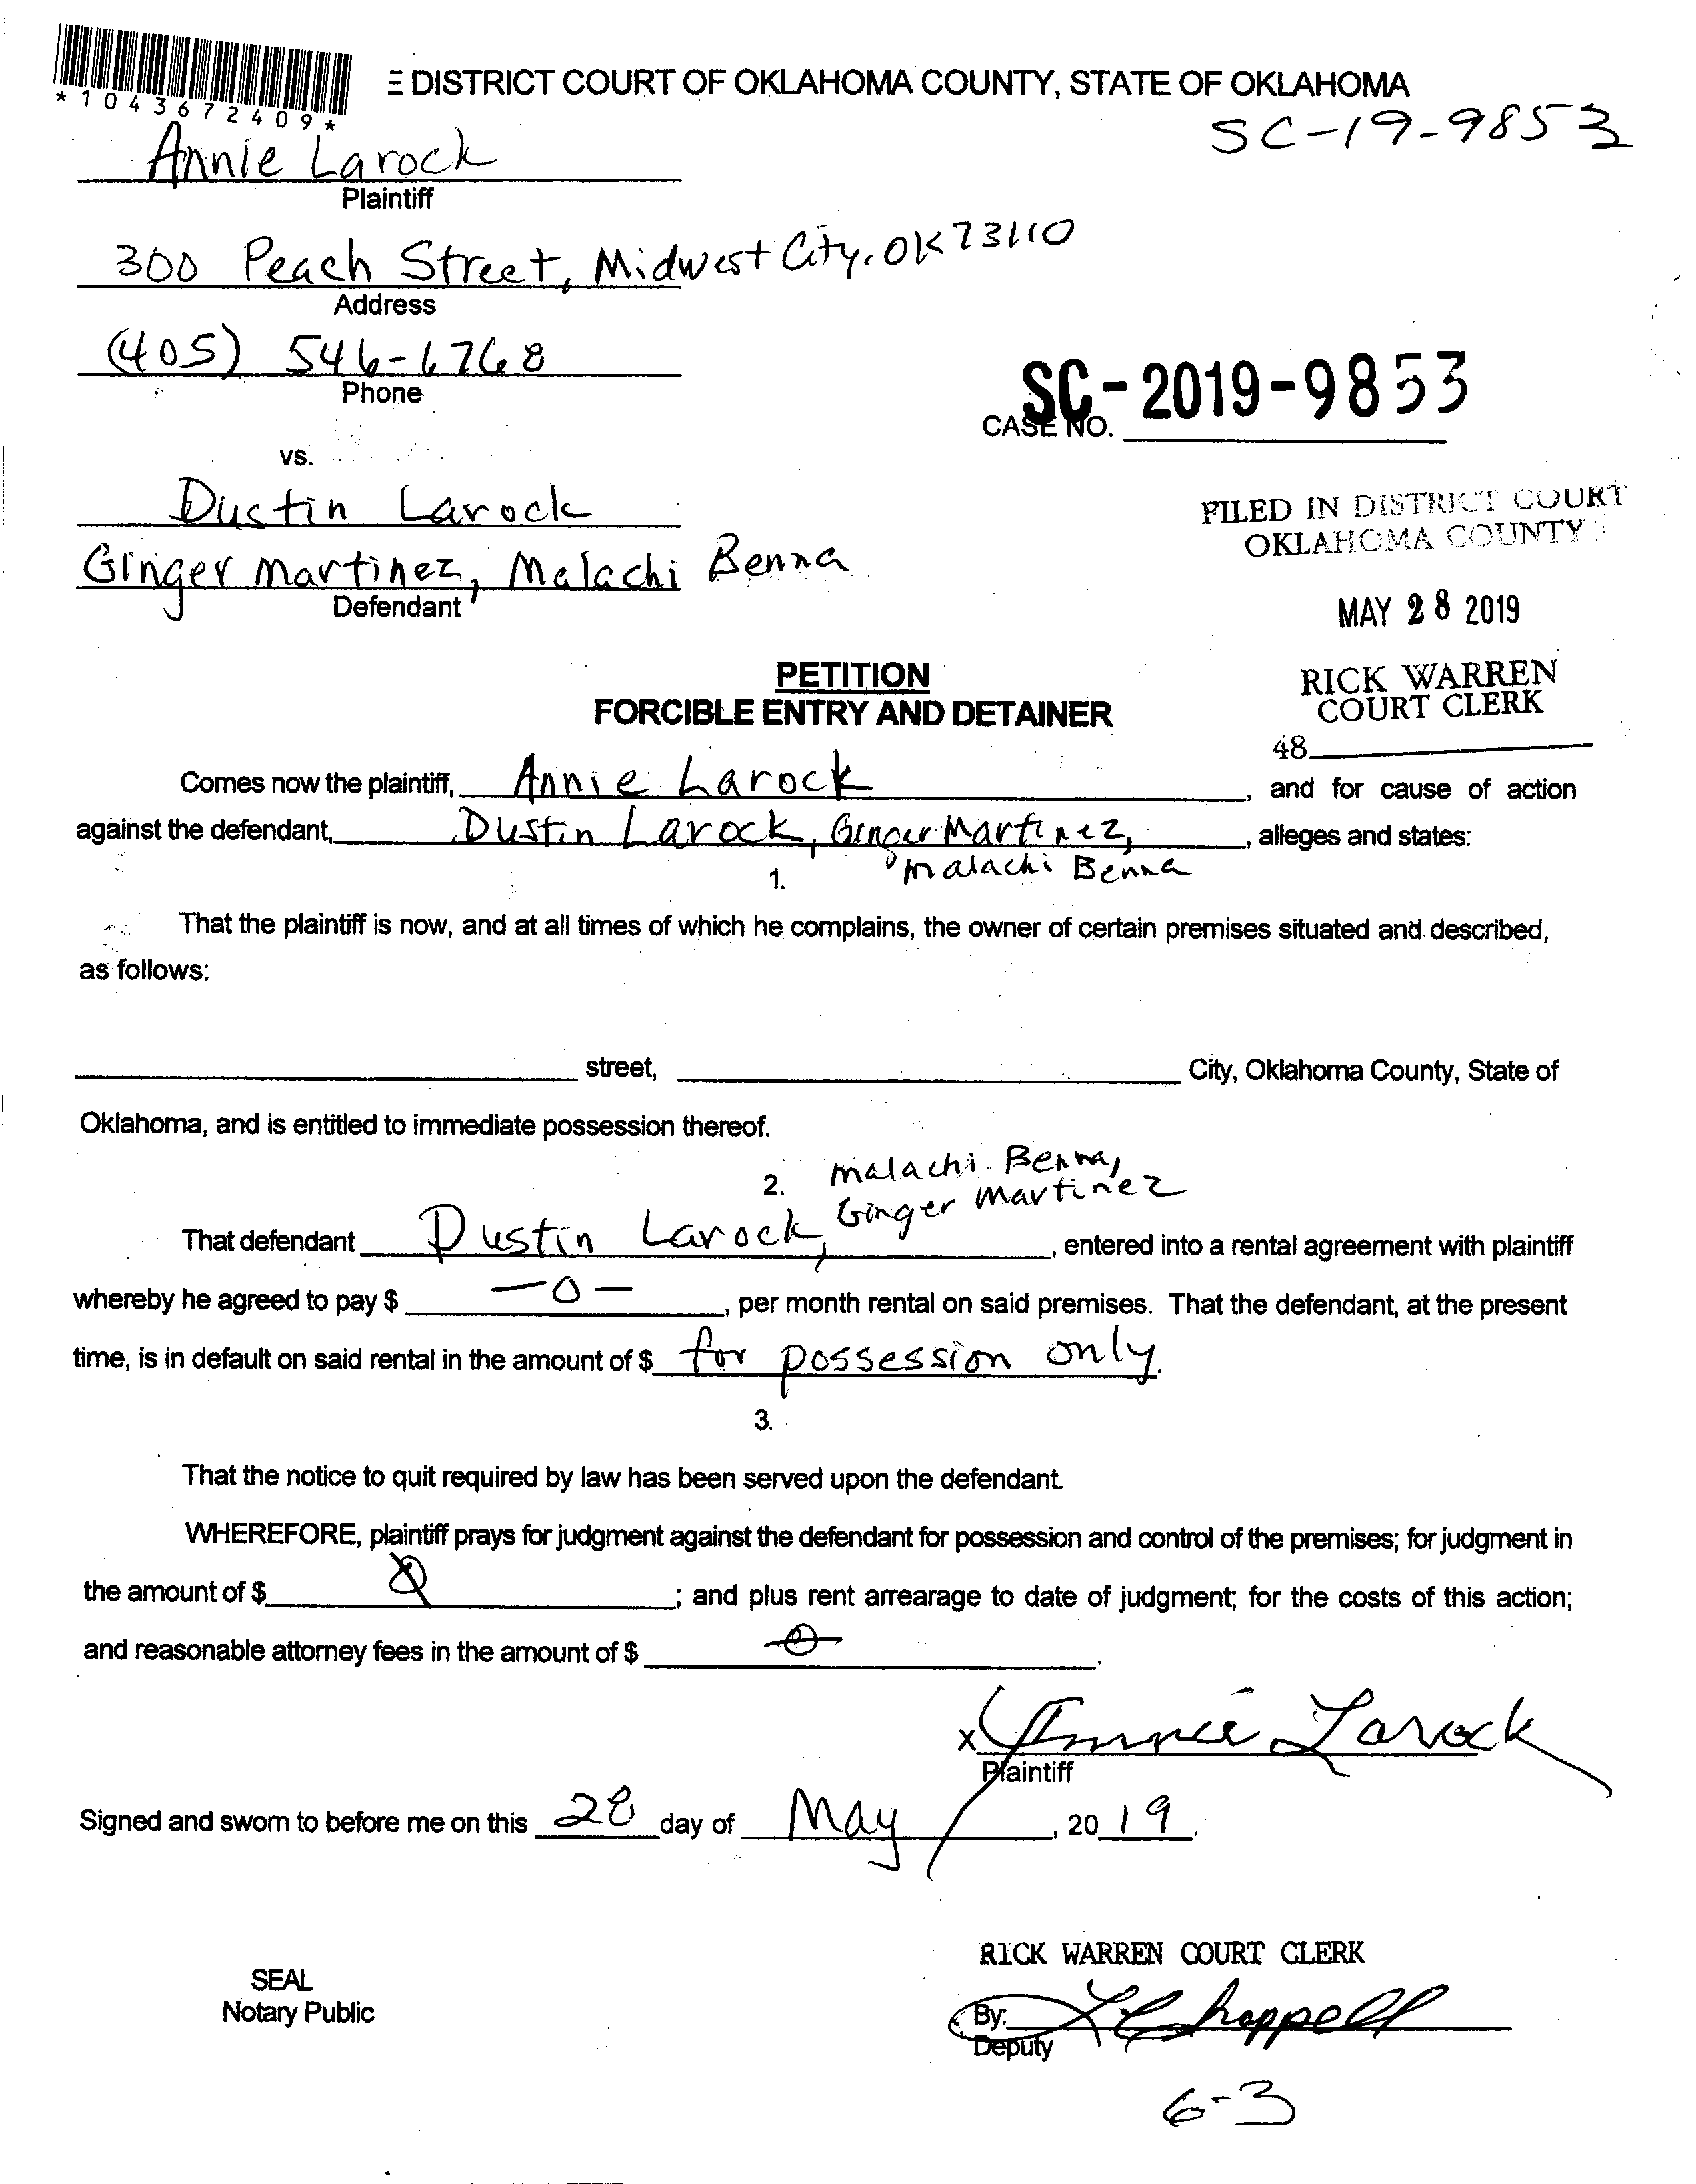 *1043672409*
E DISTRICT COURT OF OKLAHOMA COUNTY, STATE OF OKLAHOMA
SC-19-9853
Annie Larock
Plaintiff
300 Peach Street, Midwest City, OK 73110
Address
(405) 546-6768
Phone
SC-2019-9853
CASE NO.
vs.
Dustin Larock
Ginger Martinez, Malachi Benna
Defendant
FILED IN DISTRICT COURT
OKLAHOMA COUNTY
MAY 28 2019
RICK WARREN
COURT CLERK
48
PETITION
FORCIBLE ENTRY AND DETAINER
Comes now the plaintiff, Annie Larock, and for cause of action
against the defendant, Dustin Larock, Ginger Martinez, alleges and states:
Malachi Benna
1.
That the plaintiff is now, and at all times of which he complains, the owner of certain premises situated and described,
as follows:
street, City, Oklahoma County, State of
Oklahoma, and is entitled to immediate possession thereof.
2. Malachi Benna,
Ginger Martinez
That defendant Dustin Larock, , entered into a rental agreement with plaintiff
whereby he agreed to pay $ -0- , per month rental on said premises. That the defendant, at the present
time, is in default on said rental in the amount of $ for possession only.
3.
That the notice to quit required by law has been served upon the defendant.
WHEREFORE, plaintiff prays for judgment against the defendant for possession and control of the premises; for judgment in
the amount of $ ; and plus rent arrearage to date of judgment; for the costs of this action;
and reasonable attorney fees in the amount of $ 0 .
x Annie Larock
Plaintiff
Signed and sworn to before me on this 28 day of May, 2019.
RICK WARREN COURT CLERK
SEAL
Notary Public
By: L Chappell
Deputy
6-3